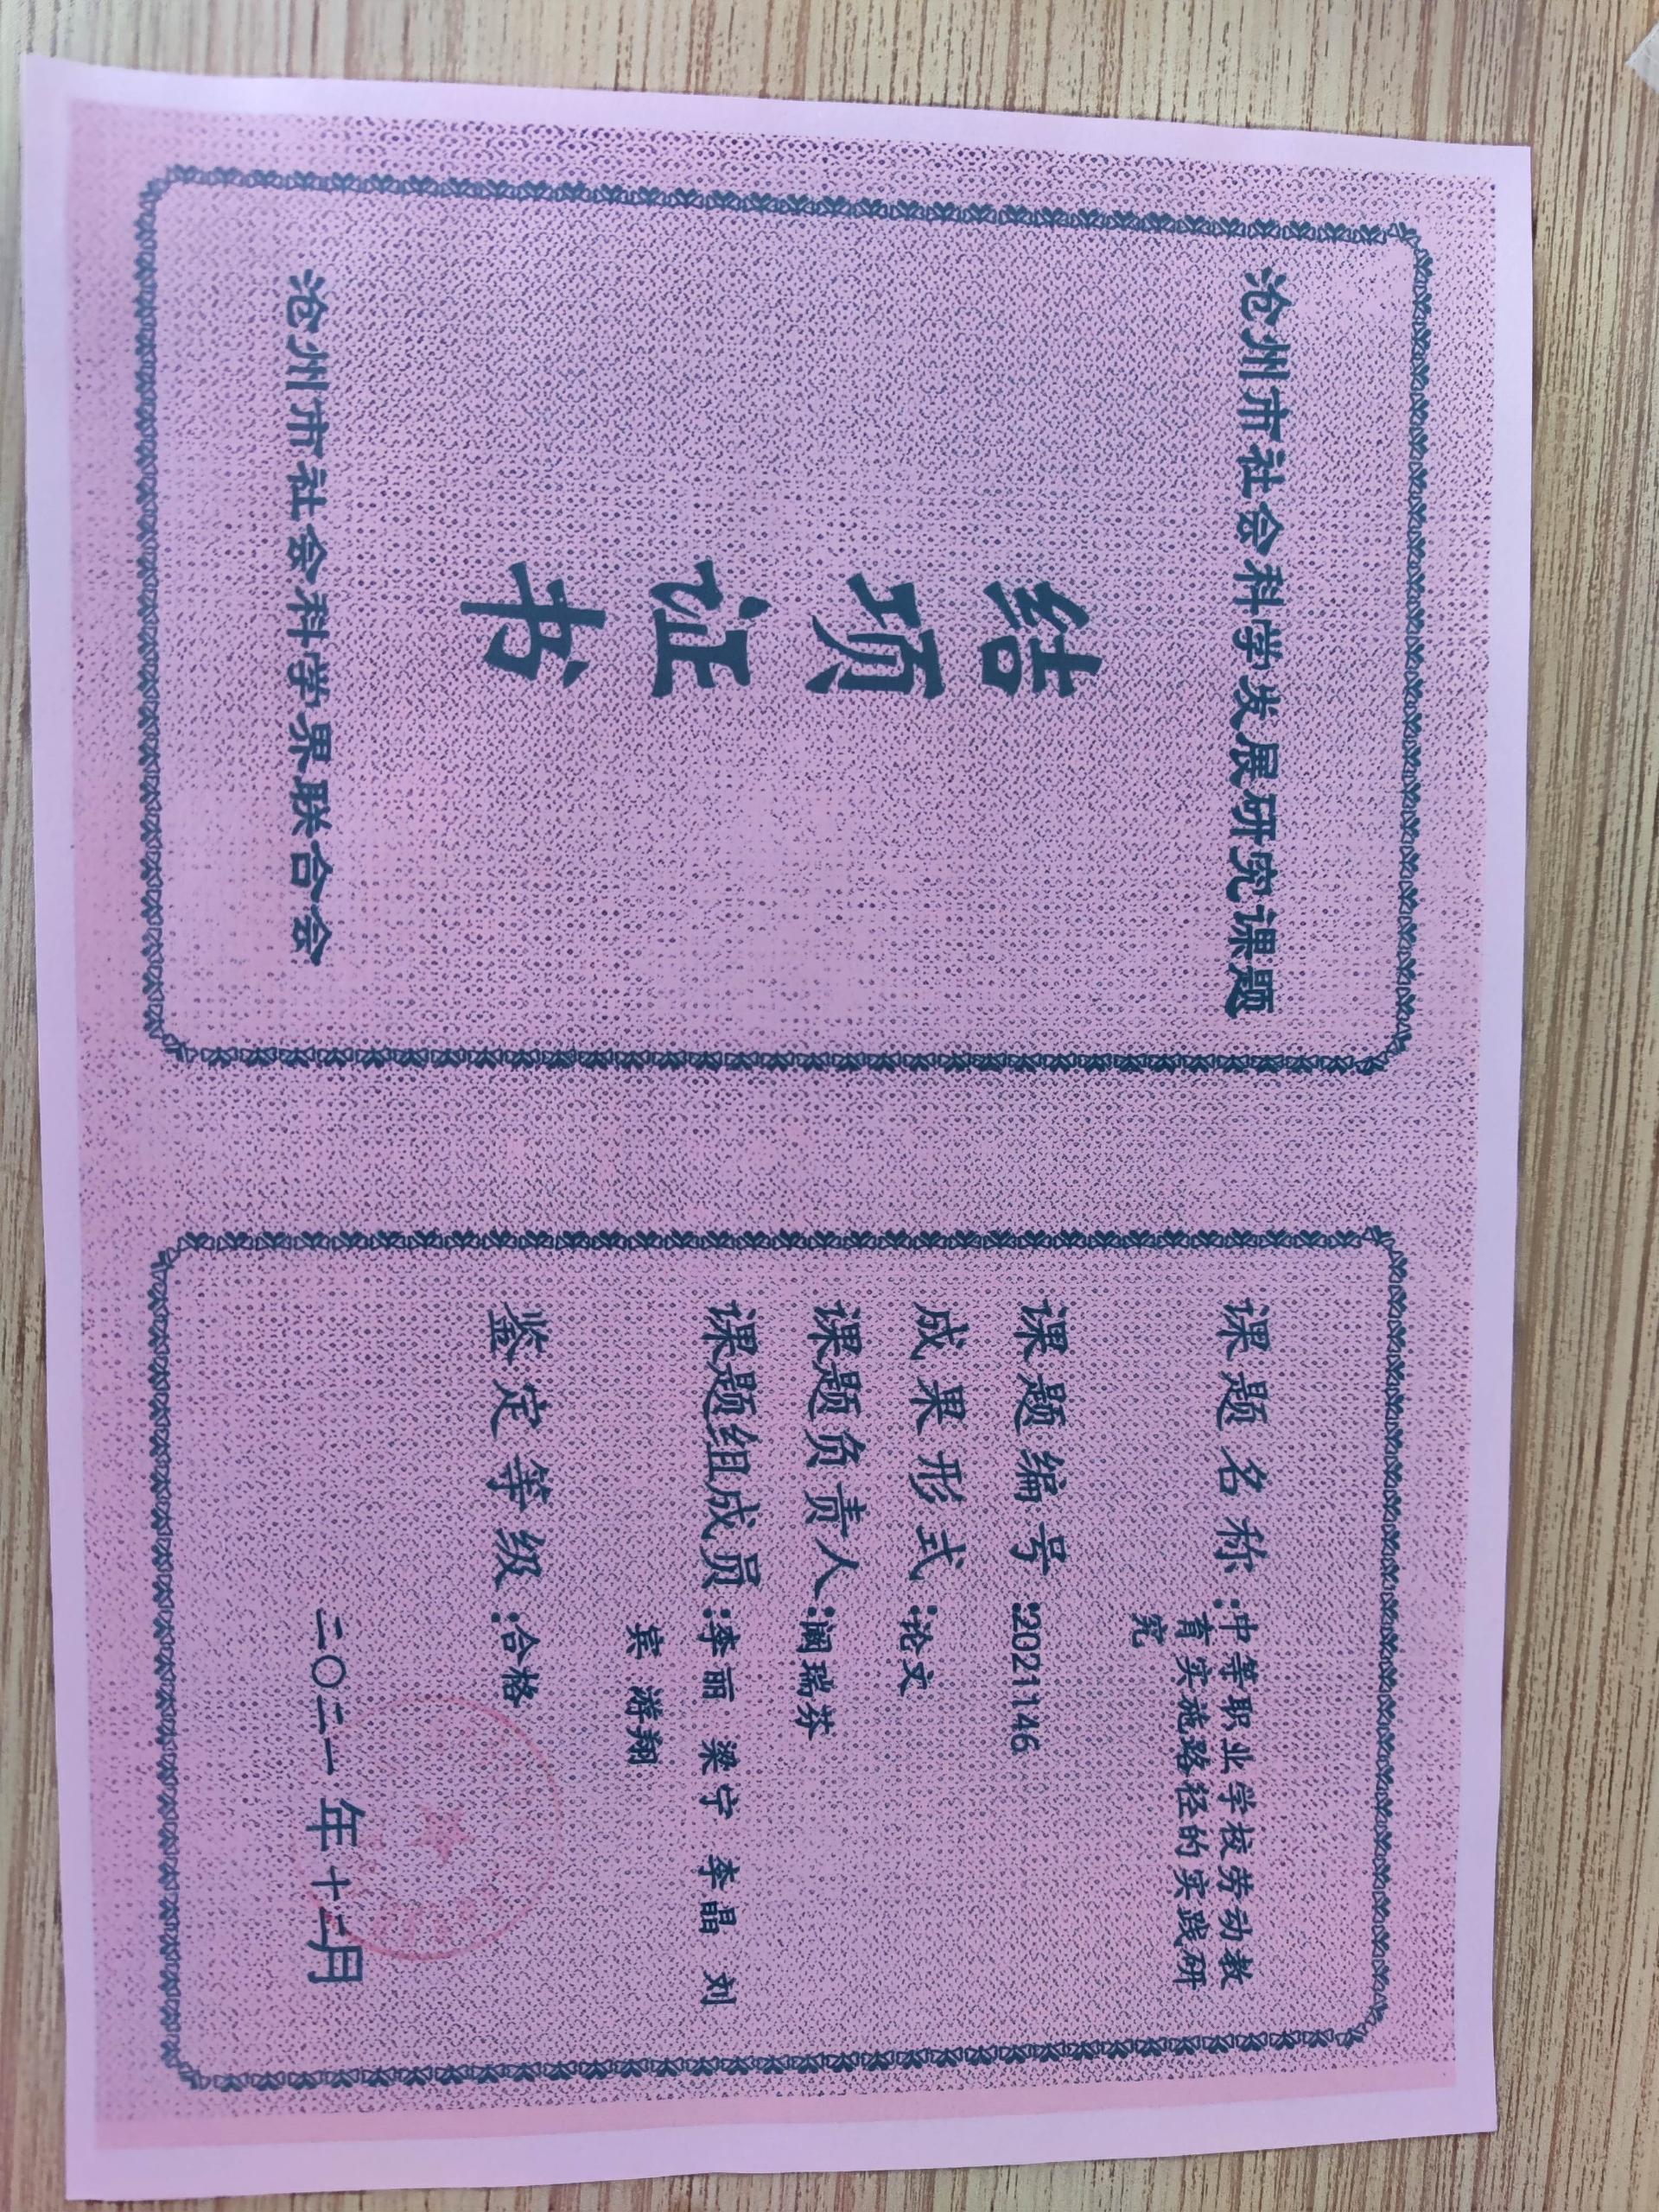 沧州市社会科学发展研究课题
结项证书
沧州市社会科学界联合会
课题名称:中等职业学校劳动教
育实施路径的实践研
究
课题编号:2021146
成果形式:论文
课题负责人:阚瑞芬
课题组成员:李丽 梁宁 李晶 刘
宾 游翔
鉴定等级:合格
二〇二一年十二月